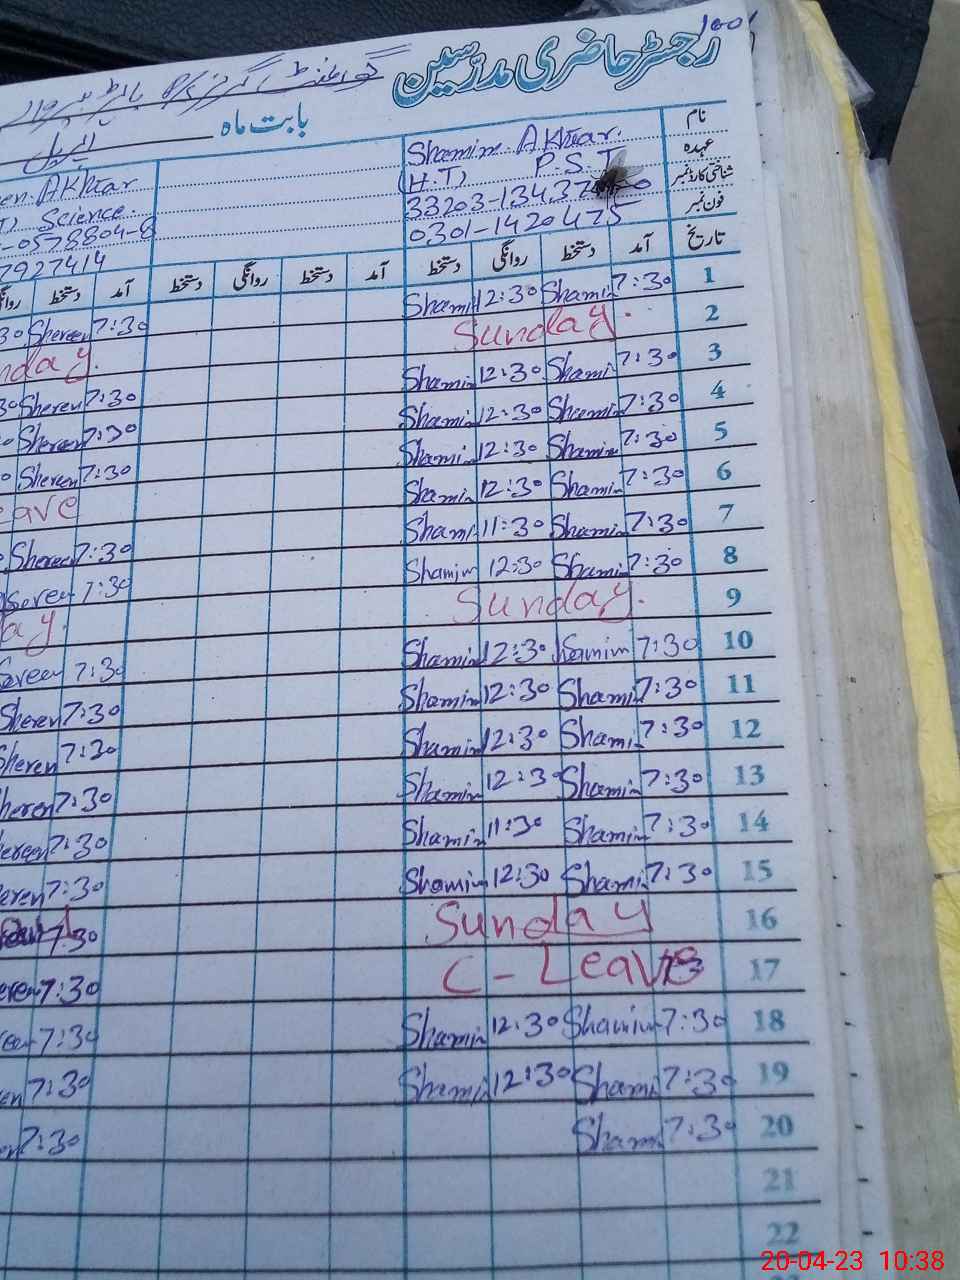 رجسٹر حاضری مدرسین
گورنمنٹ گرلز
بابت ماہ اپریل
نام Shamim Akhtar.
عہدہ (H.T) P.S.T
شناختی کارڈ نمبر 33203-13437
فون نمبر 0301-1420475
Akhtar
Science.
-0578804-8
7927414
تاریخ آمد دستخط روانگی دستخط آمد دستخط روانگی دستخط آمد دستخط
1 7:30 Shamim 12:30 Shamim 7:30 Shereen
2 Sunday.
3 7:30 Shamim 12:30 Shamim 7:30 Sheren
4 7:30 Shamim 12:30 Shamim 7:30 Sheren
5 7:30 Shamim 12:30 Shamim 7:30 Sheren
6 7:30 Shamim 12:30 Shamim
7 7:30 Shamim 11:30 Shamim 7:30 Shereen
8 7:30 Shamim 12:30 Shamim 7:30
9 Sunday.
10 7:30 Shamim 12:30 Shamim 7:30
11 7:30 Shamim 12:30 Shamim 7:30 Sheren
12 7:30 Shamim 12:30 Shamim 7:30 Sheren
13 7:30 Shamim 12:30 Shamim 7:30
14 7:30 Shamim 11:30 Shamim 7:30
15 7:30 Shamim 12:30 Shamim 7:30
16 Sunday 7:30
17 C-Leave 7:30
18 7:30 Shamim 12:30 Shamim 7:30
19 7:30 Shamim 12:30 Shamim 7:30
20 7:30 Shamim 7:30
21
22
20-04-23 10:38